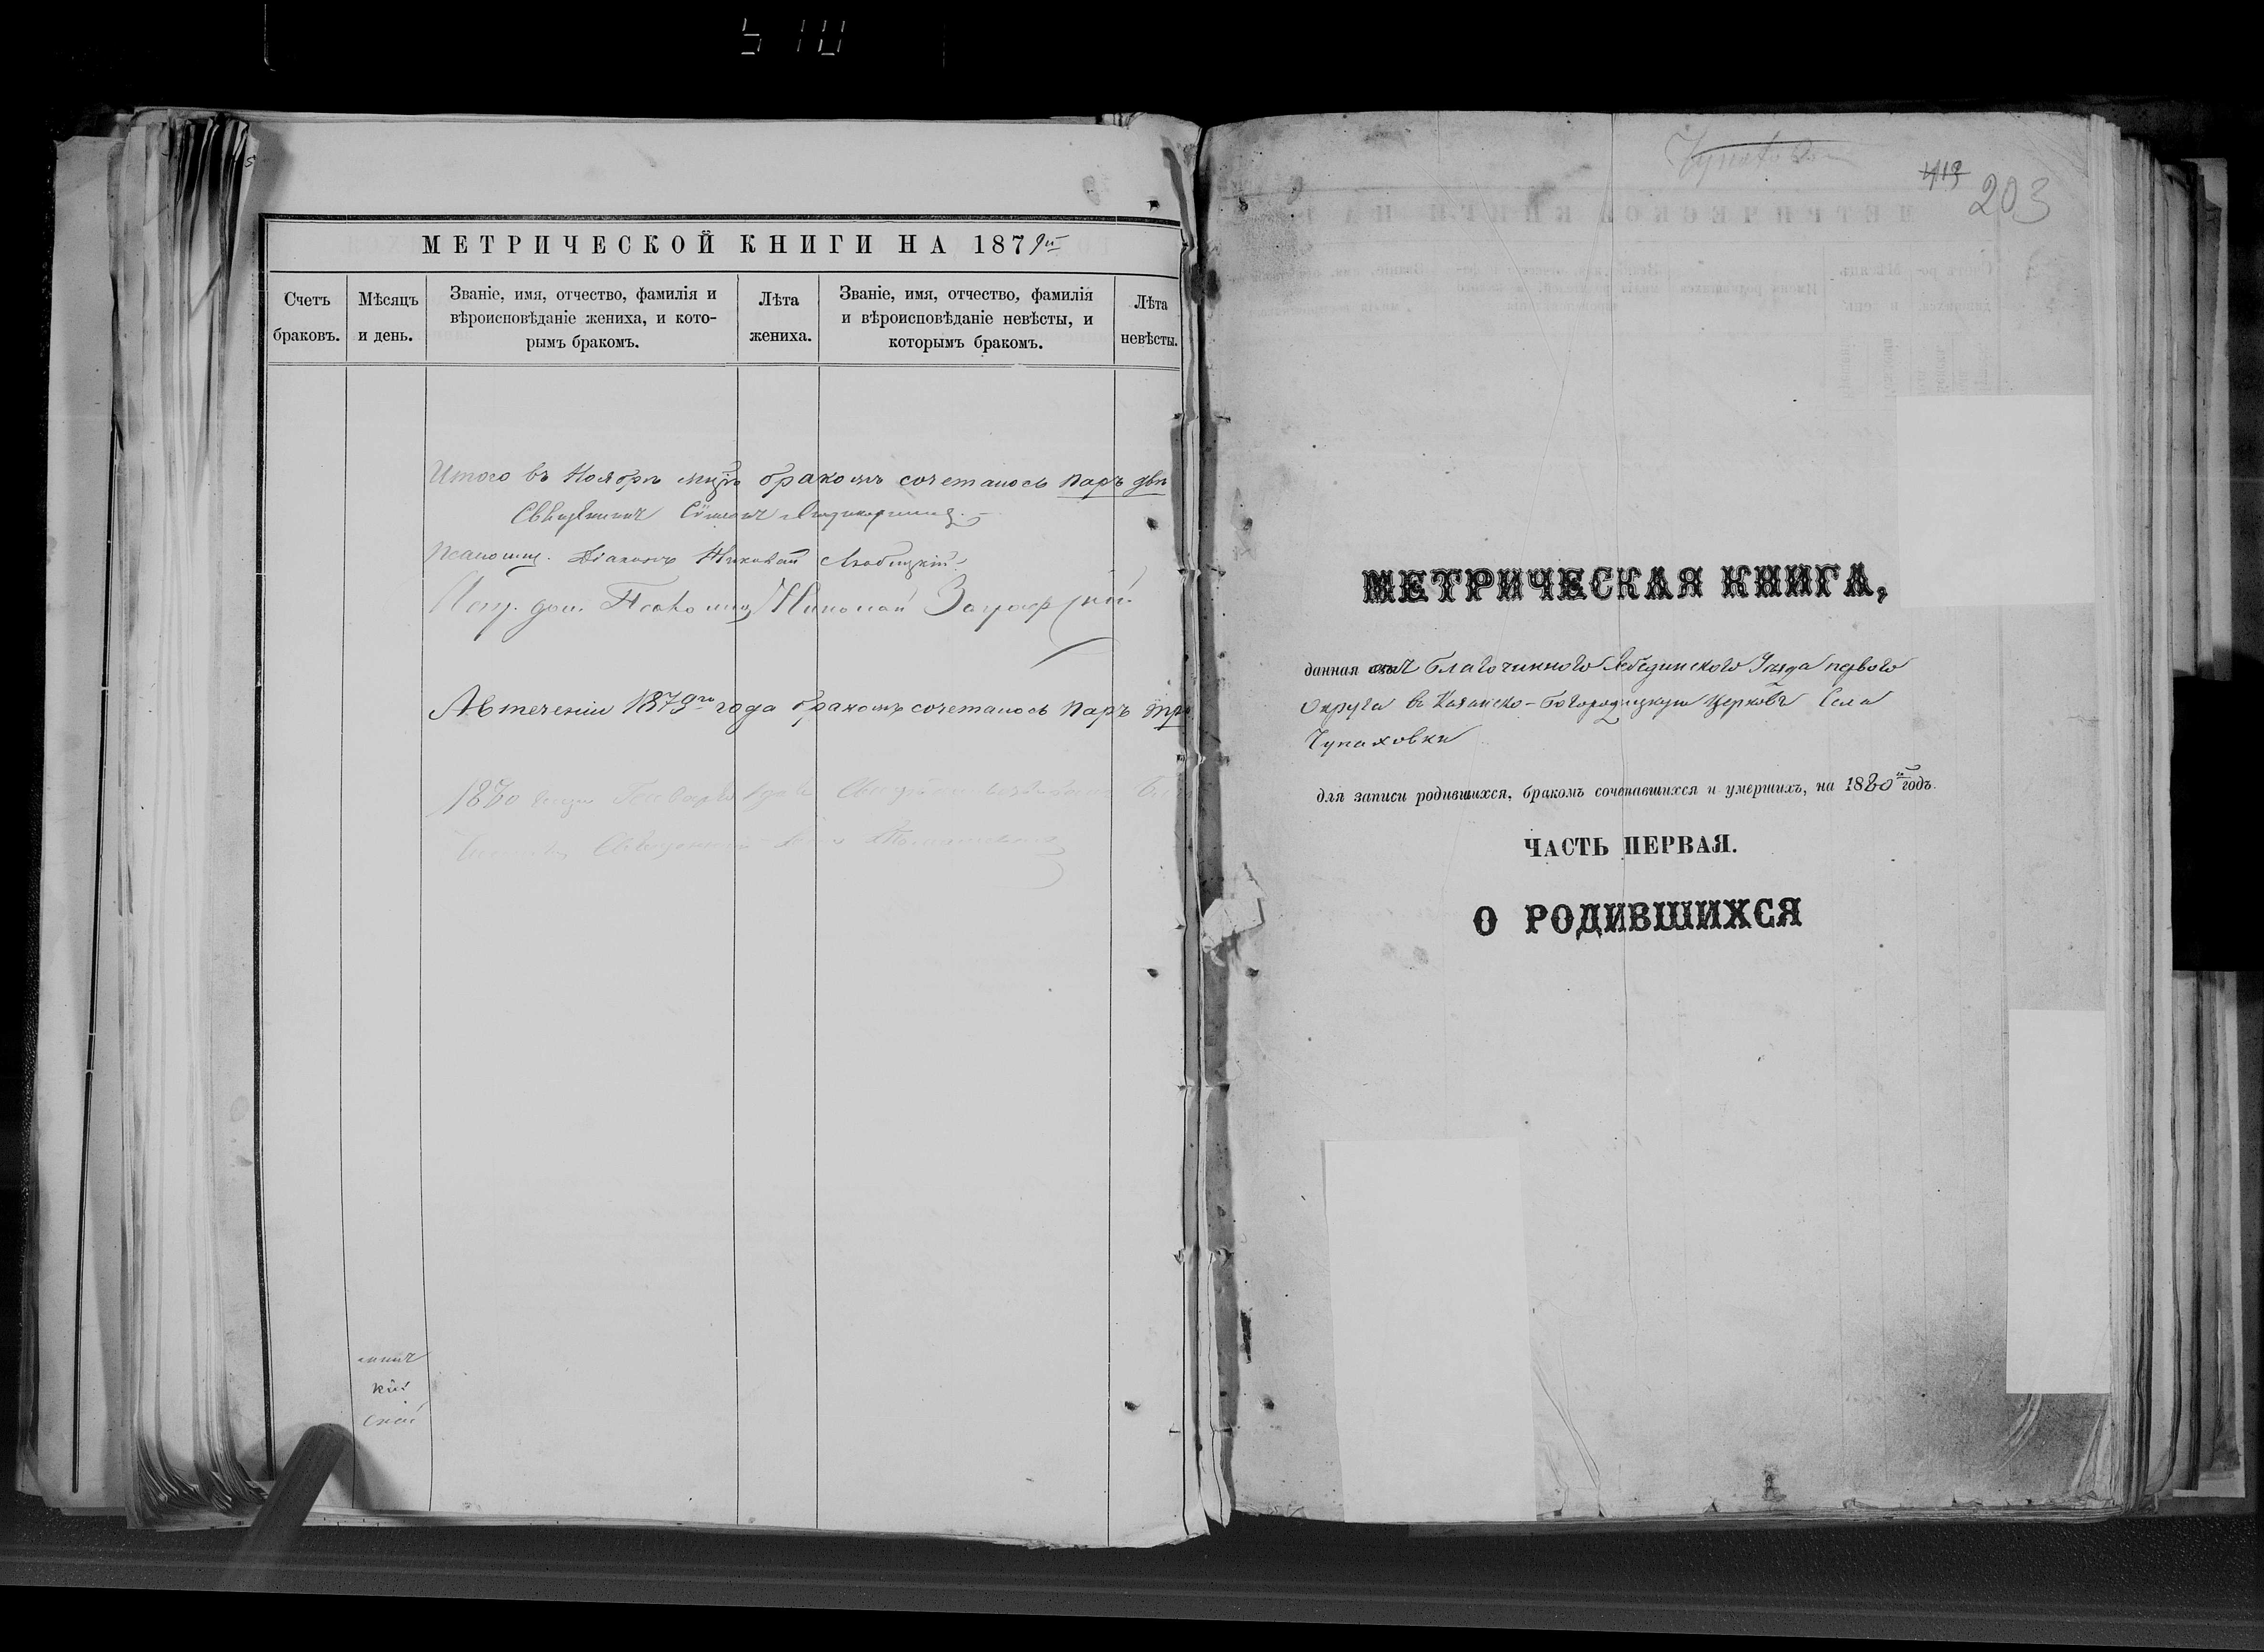 МЕТРИЧЕСКОЙ КНИГИ НА 1879й
Счетъ браковъ.
Мѣсяцъ и день.
Званіе, имя, отчество, фамилія и
вѣроисповѣданіе жениха, и кото-
рымъ бракомъ.
Лѣта жениха.
Званіе, имя, отчество, фамилія
и вѣроисповѣданіе невѣсты, и
которымъ бракомъ.
Лѣта невѣсты.
Итого въ Ноябрѣ мцѣ бракомъ сочеталось паръ двѣ
Священникъ Сѵмеонъ
Псаломщ. Діаконъ Николай Любицкій
Псаломщ Николай
Въ теченіи 1879го года бракомъ сочеталось паръ
1880
Священникъ
кій
скій
413
203
МЕТРИЧЕСКАЯ КНИГА,
данная отъ Благочиннаго Лебединскаго Уѣзда перваго
Округа въ Казанско-Богородицкую Церковь Села
Чупаховки
для записи родившихся, бракомъ сочетавшихся и умершихъ, на 1880й годъ.
ЧАСТЬ ПЕРВАЯ.
О РОДИВШИХСЯ